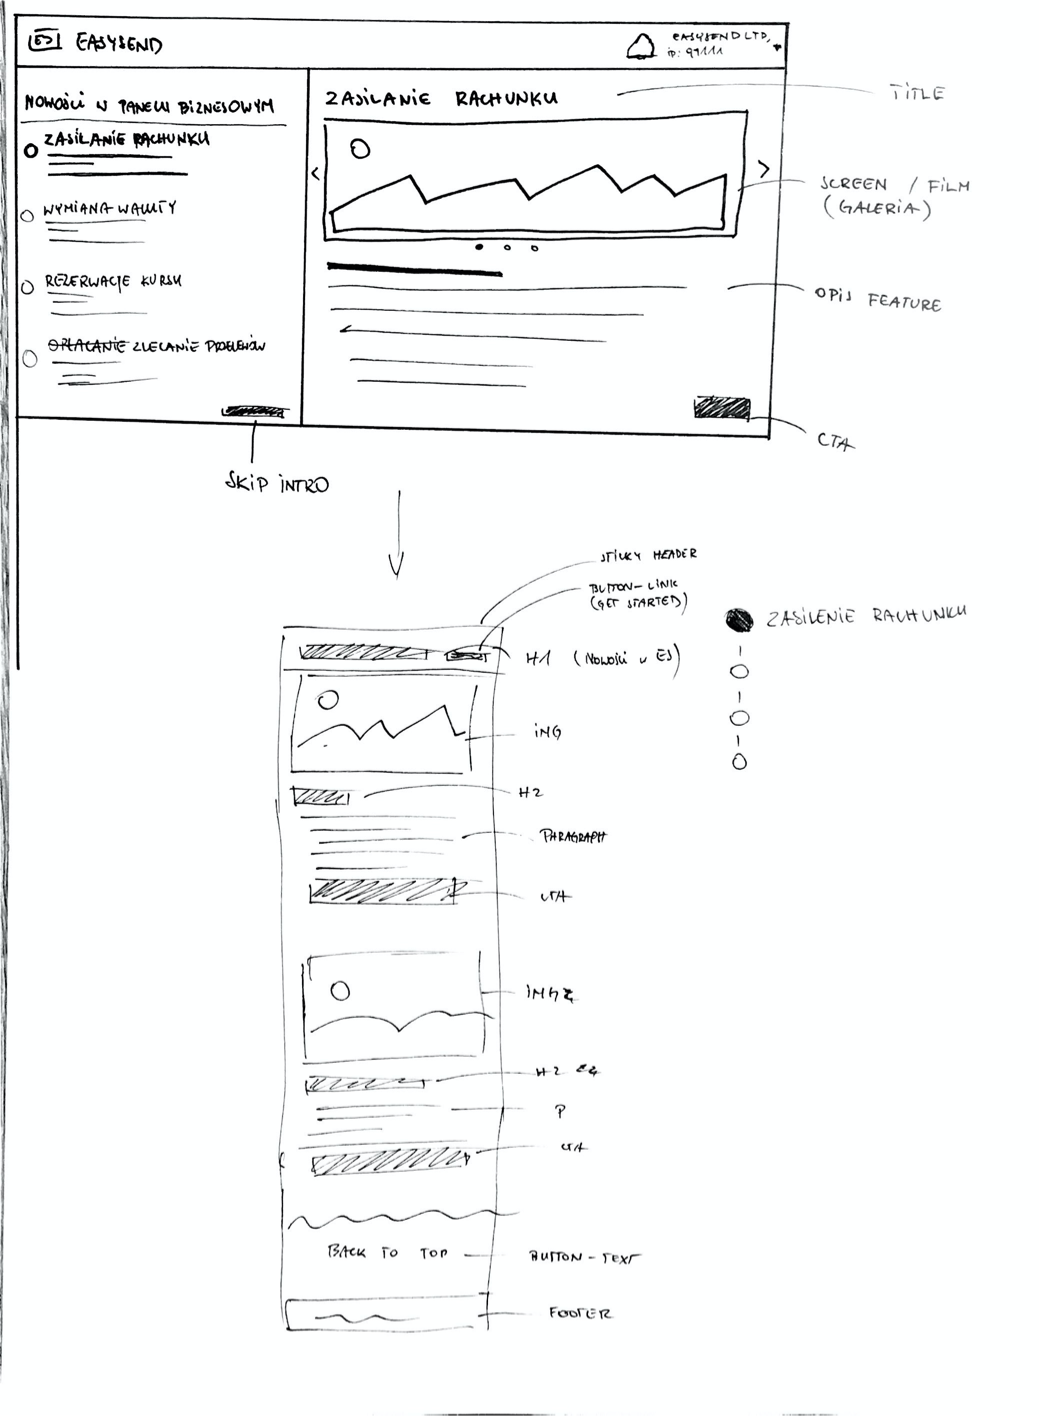 ES EASYSEND
EASYSEND LTD,
ID: 97111
NOWOŚCI W PANELU BIZNESOWYM
ZASILANIE RACHUNKU
WYMIANA WALUTY
REZERWACJE KURSU
OPŁACANIE ZLECANIE PRZELEWÓW
ZASILANIE RACHUNKU
< >
TITLE
SCREEN / FILM
(GALERIA)
OPIS FEATURE
CTA
SKIP INTRO
STICKY HEADER
BUTTON-LINK
(GET STARTED)
H1 (NOWOŚCI W ES)
IMG
H2
PARAGRAPH
CTA
IMG 2
H2
P
CTA
BACK TO TOP
BUTTON-TEXT
FOOTER
ZASILENIE RACHUNKU